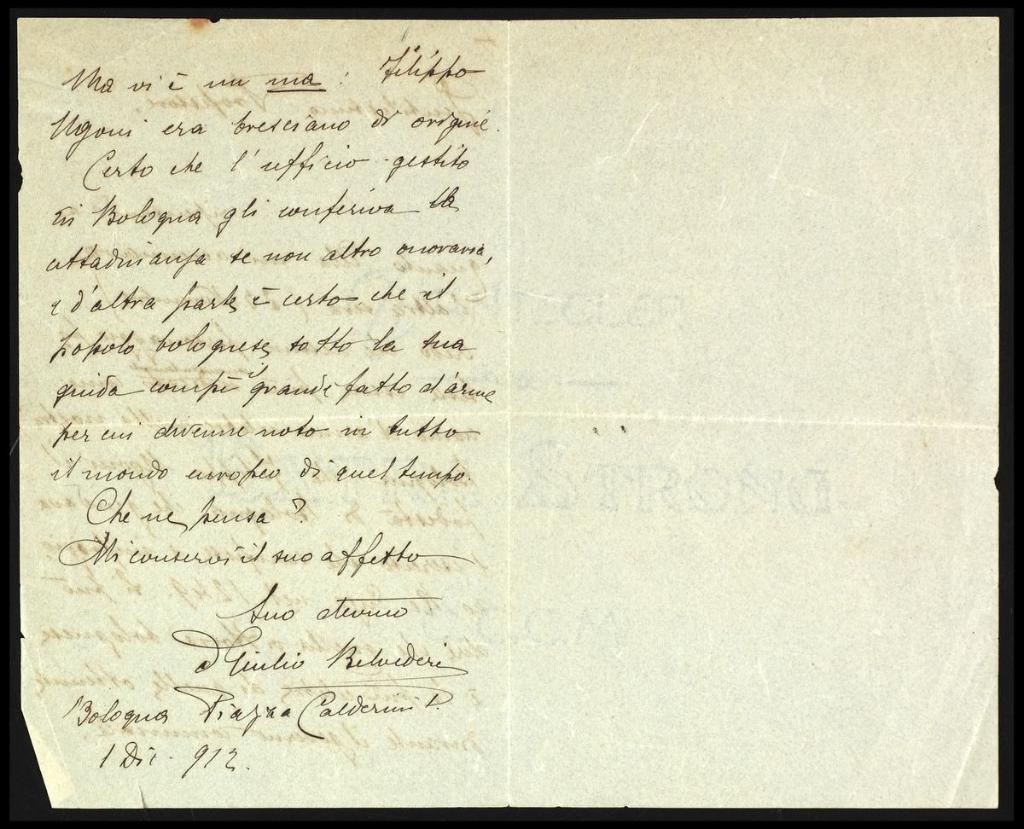 Ma vi è un ma: Filippo
Ugoni era bresciano di origine.
Certo che l'ufficio gestito
in Bologna gli conferiva la
cittadinanza se non altro onoraria,
e d'altra parte è certo che il
popolo bolognese sotto la sua
guida compì il grande fatto d'arme
per cui divenne noto in tutto
il mondo europeo di quel tempo.
Che ne pensa?
Mi conservi il suo affetto
Suo
D Giulio Belvederi
Bologna Piazza Calderini
1 Dic. 912.